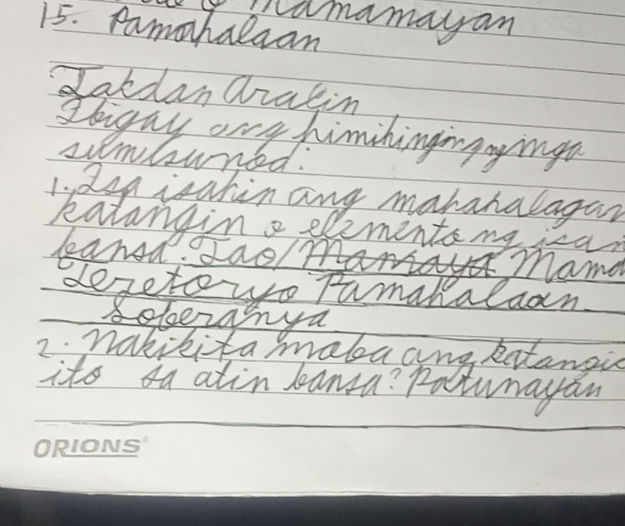 Mamamayan
15. Pamahalaan
Takdan Aralin
Ibigay ang himihinging ng mga
sumusunod:
1. Isa isahin ang mahahalagan
katangin o elemento ng isan
bansa. Tao/ Mamaya Mama
Teretoryo Pamahalaan
Soberanya
2. Nakikita moba ang katangi
ito sa atin bansa? Patunayan
ORIONS